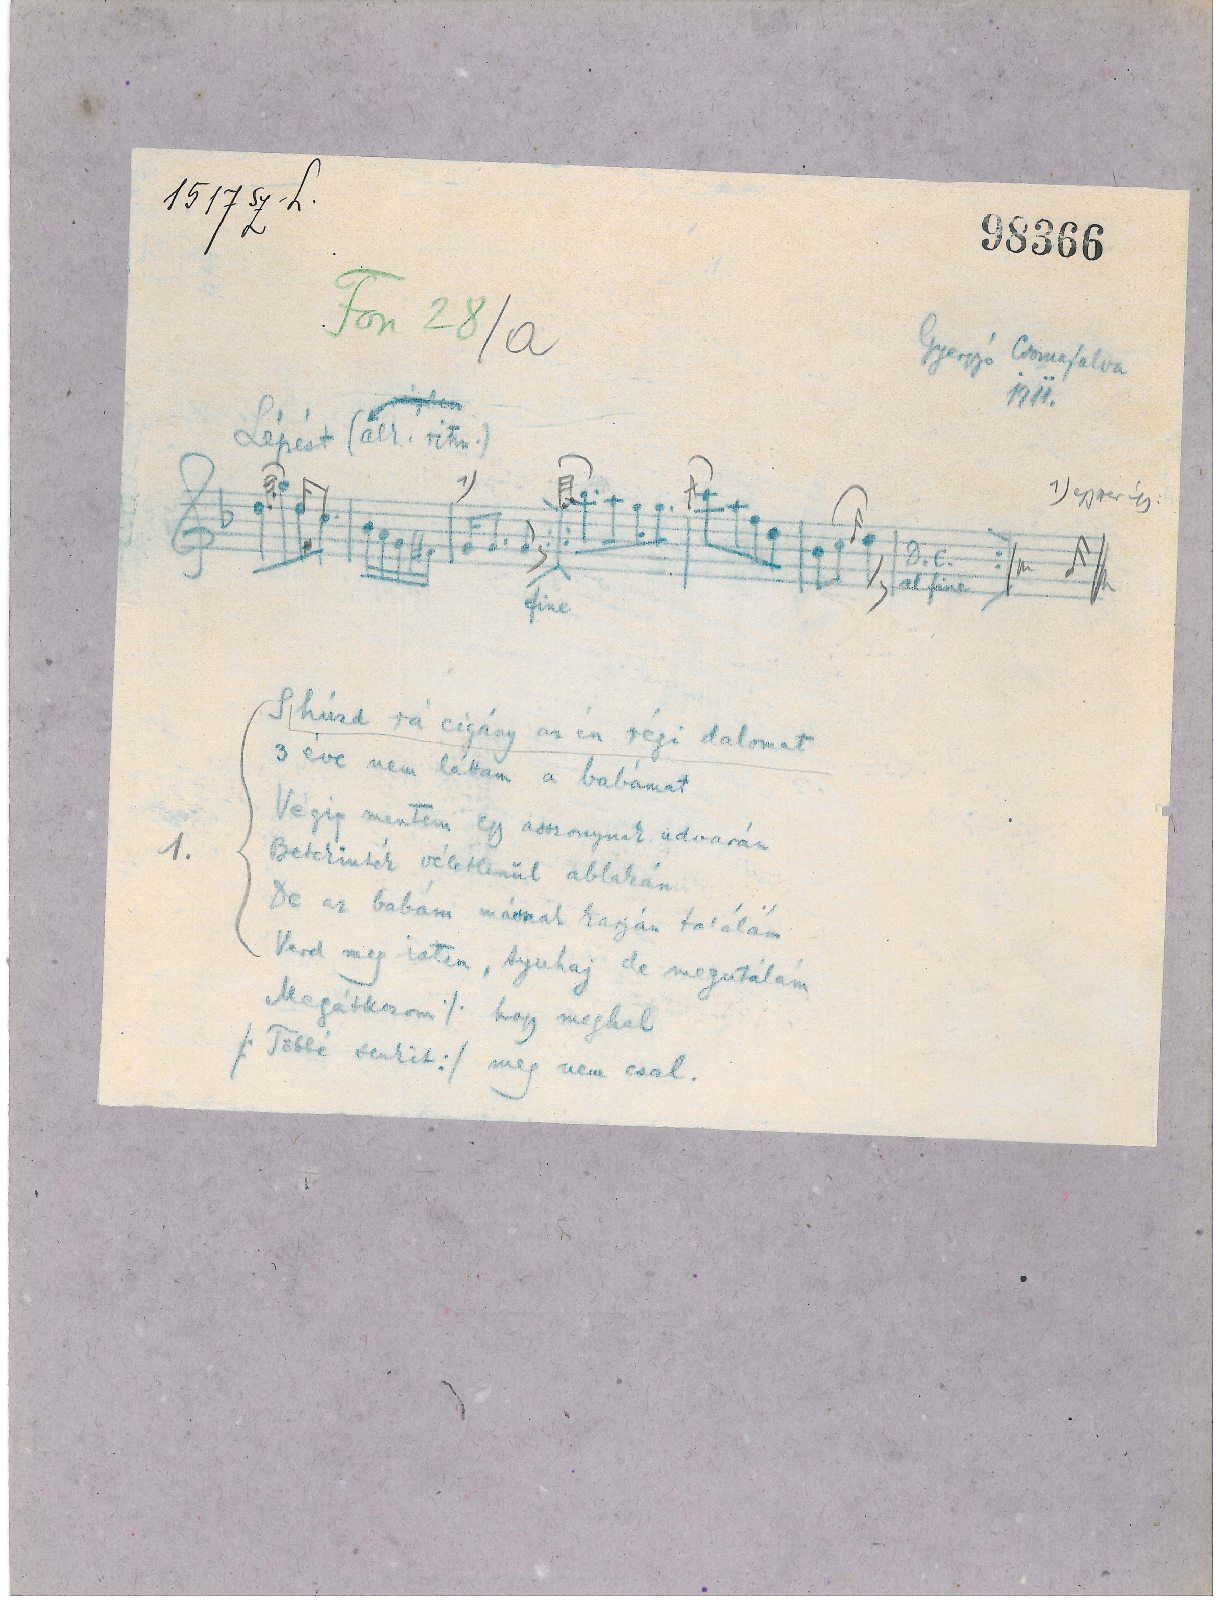 1517 sz. L.
98366
Fon 28/a
Gyergyó Csomafalva
1911.
Lépést (alk. ritm.)
1)
1) egyszer így:
D. C.
al fine
fine
S húzd rá cigány az én régi dalomat
3 éve nem láttam a babámat
Végig mentem egy asszonynak udvarán
Beték véletlenül ablakán
De az babám másnak karján találám
Verd meg isten, tyuhaj de megutálám
Megátkozom ·/· hogy meghal
1.
/: Többé senkit :/ meg nem csal.